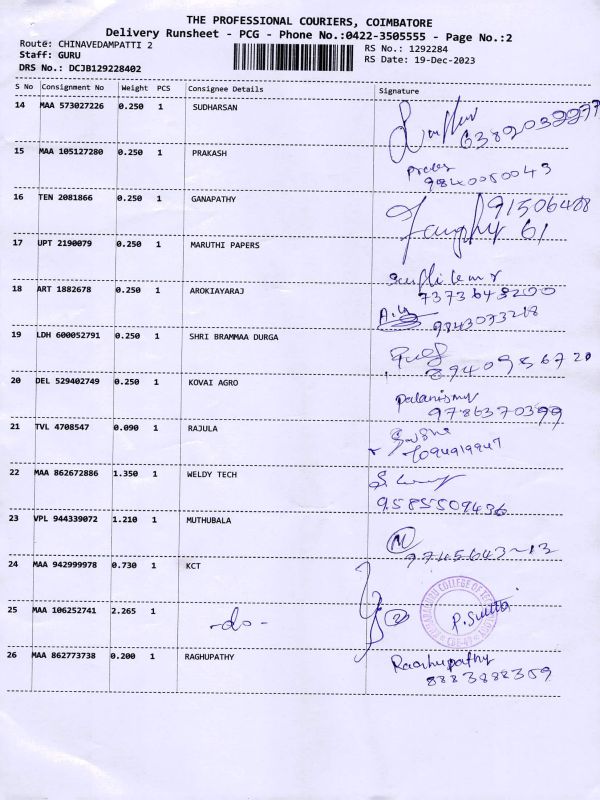 THE PROFESSIONAL COURIERS, COIMBATORE
Delivery Runsheet - PCG - Phone No.:0422-3505555 - Page No.:2
Route: CHINAVEDAMPATTI 2 RS No.: 1292284
Staff: GURU RS Date: 19-Dec-2023
DRS No.: DCJB129228402
S No Consignment No Weight PCS Consignee Details Signature
14 MAA 573027226 0.250 1 SUDHARSAN
15 MAA 105127280 0.250 1 PRAKASH
9840050043
16 TEN 2081866 0.250 1 GANAPATHY
91506428
61
17 UPT 2190079 0.250 1 MARUTHI PAPERS
7373643200
18 ART 1882678 0.250 1 AROKIAYARAJ
9843073218
19 LDH 600052791 0.250 1 SHRI BRAMMAA DURGA
20 DEL 529402749 0.250 1 KOVAI AGRO
9786370399
21 TVL 4708547 0.090 1 RAJULA
22 MAA 862672886 1.350 1 WELDY TECH
9585509436
23 VPL 944339072 1.210 1 MUTHUBALA
24 MAA 942999978 0.730 1 KCT
25 MAA 106252741 2.265 1 -do- 2
26 MAA 862773738 0.200 1 RAGHUPATHY Raghupathy
8883888359